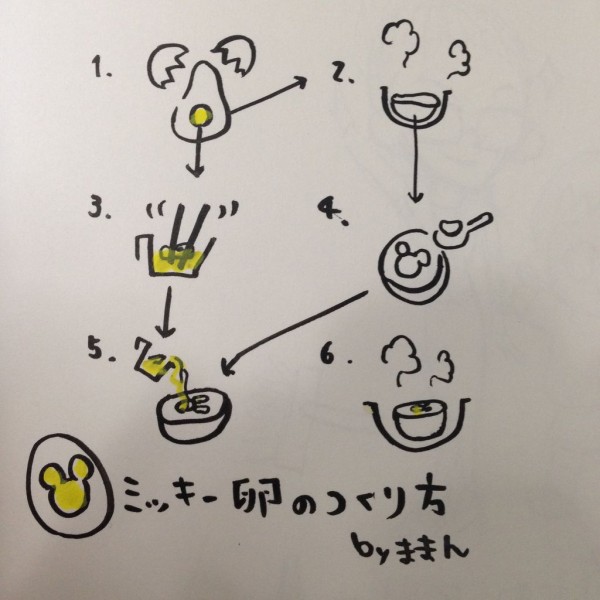 1.
2.
3.
4.
5.
6.
ミッキー卵のつくり方
by ままん